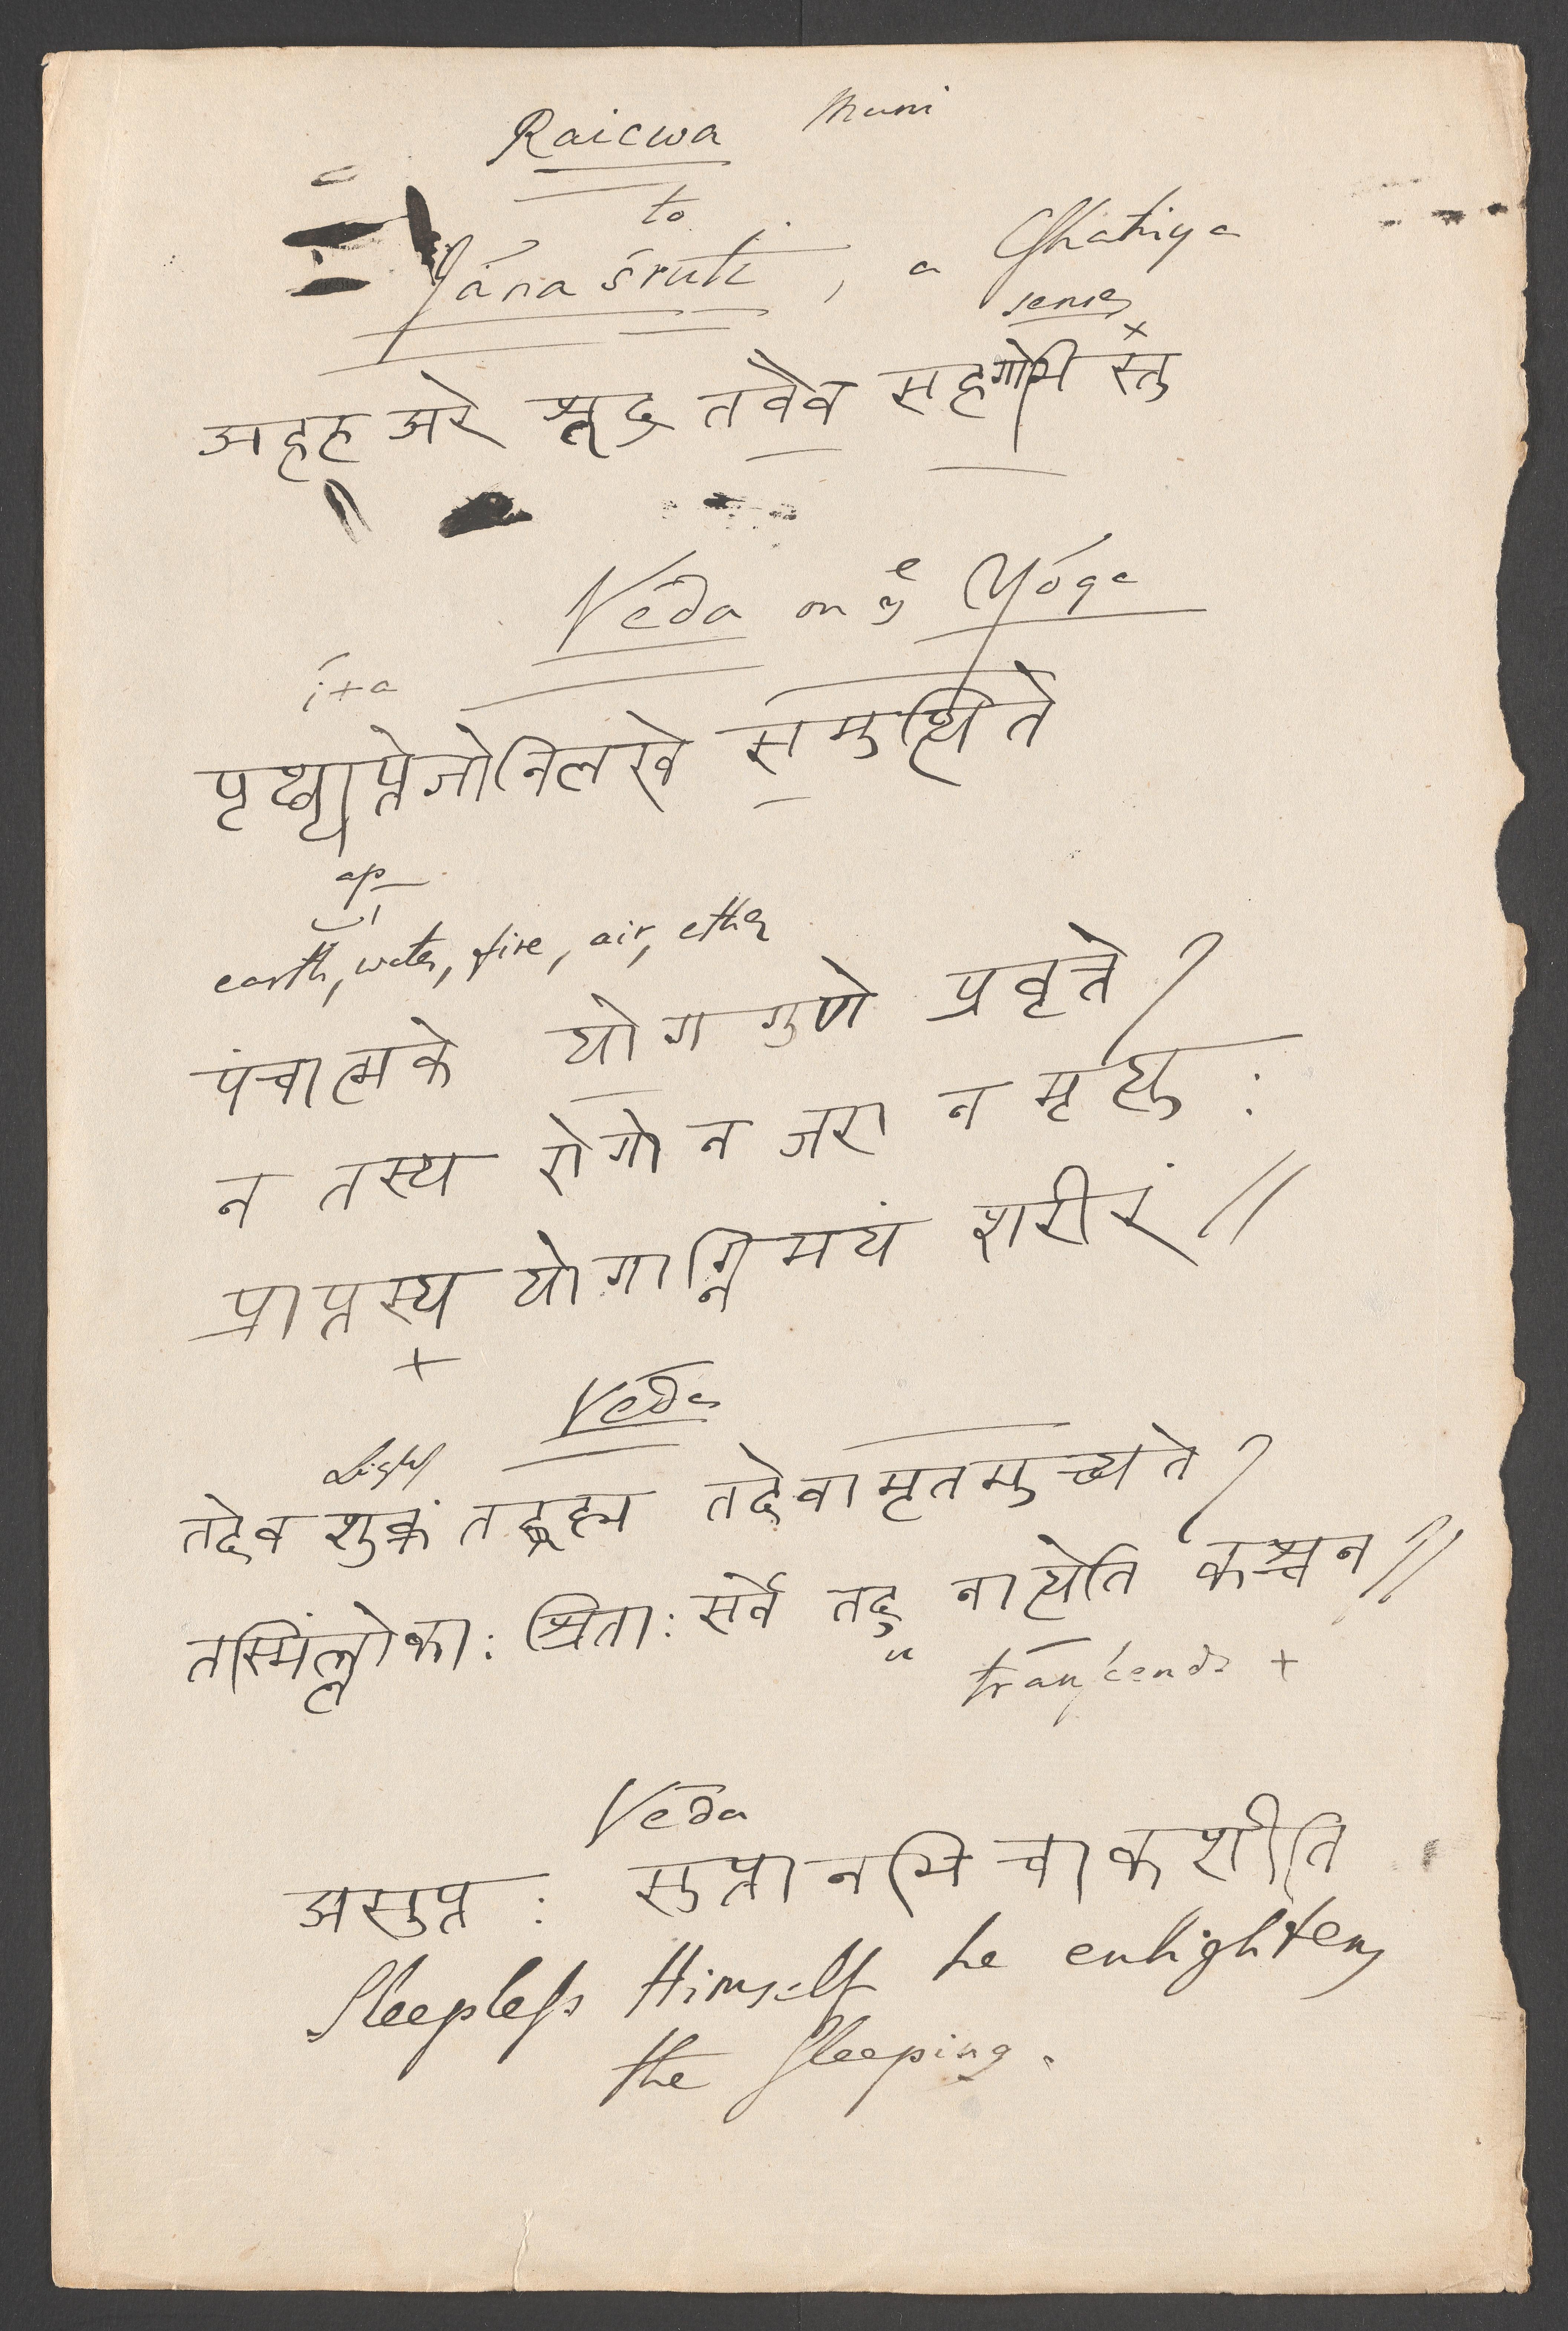 Raicwa Muni
to
Jána śruti, a Cshatriya
senses
अहह अरे शूद्र तवैव सहगोभि स्तु
Véda on yͤ Yóga
i+a
पृथ्व्याप्तेजोनिलखे समुत्थिते
ap
earth, water, fire, air, ether
पंचात्मके योग गुणे प्रवृत्ते ।
न तस्य रोगो न जरा न मृत्यु :
प्राप्तस्य योगाग्निमयं शरीरं ॥
Véda
Light
तदेव शुक्रं तद्ब्रह्म तदेवामृतमुच्यते ।
तस्मिंल्लोका: श्रिता: सर्वे तदु नात्येति कश्चन ॥
u transcends +
Véda
असुप्त : सुप्तानभि चाकशीति
Sleepless Himself he enlightens
the Sleeping.